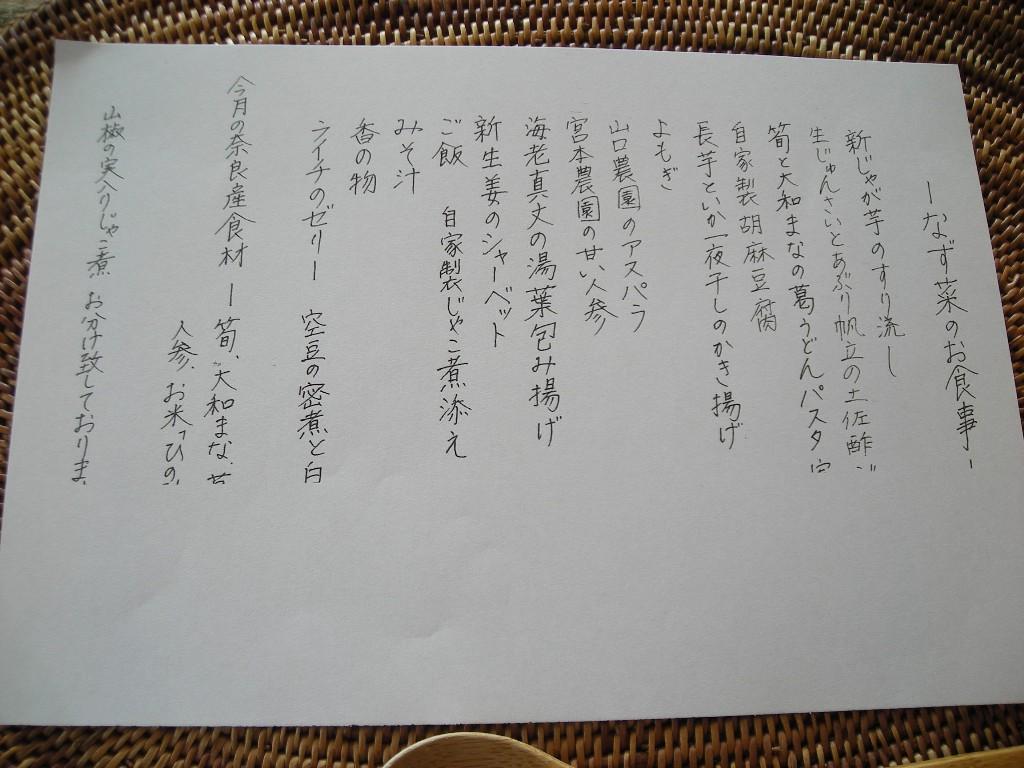 ーなず菜のお食事ー
新じゃが芋のすり流し
生じゅんさいとあぶり帆立の土佐酢ジ
筍と大和まなの葛うどんパスタ
自家製胡麻豆腐
長芋といか一夜干しのかき揚げ
よもぎ
山口農園のアスパラ
宮本農園の甘い人参
海老真丈の湯葉包み揚げ
新生姜のシャーベット
ご飯 自家製じゃこ煮添え
みそ汁
香の物
ライチのゼリー 空豆の密煮と白
今月の奈良産食材 ー 筍、大和まな、
人参、お米「ひの
山椒の実入りじゃこ煮 お分け致しております